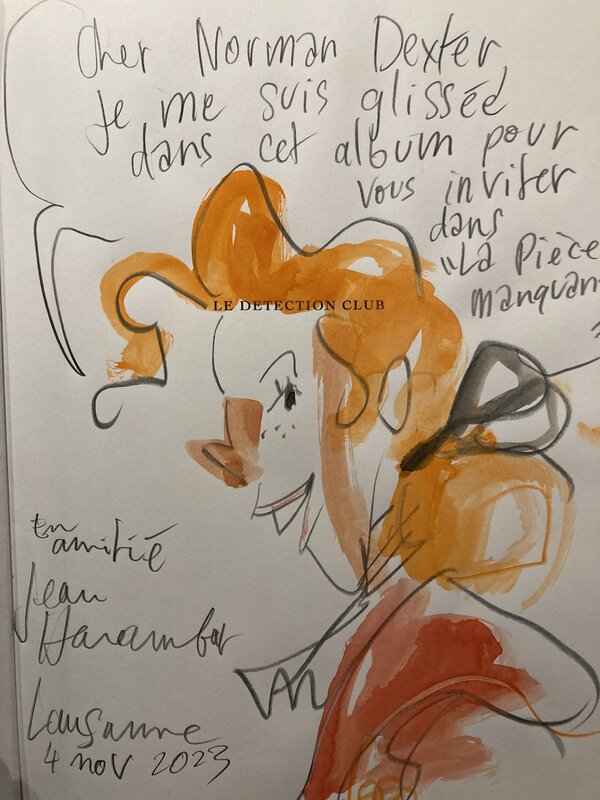 Cher Norman Dexter,
Je me suis glissée
dans cet album pour
vous inviter
dans
"La Pièce
manquan
LE DETECTION CLUB
En
amitié
Jean
Harambat
Lausanne
4 nov 2023